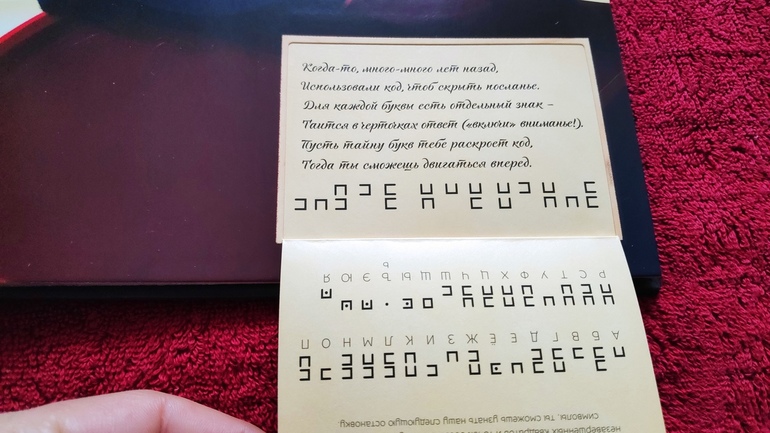 Когда-то, много-много лет назад,
Использовали код, чтоб скрыть посланье.
Для каждой буквы есть отдельный знак –
Таится в черточках ответ («включи» вниманье!).
Пусть тайну букв тебе раскроет код,
Тогда ты сможешь двигаться вперед.
незавершенных квадратов и
символы, ты сможешь узнать нашу следующую остановку
А Б В Г Д Е Ё Ж З И К Л М Н О П
Р С Т У Ф Х Ц Ч Ш Щ Ы Ъ Э Ю Я
Ь